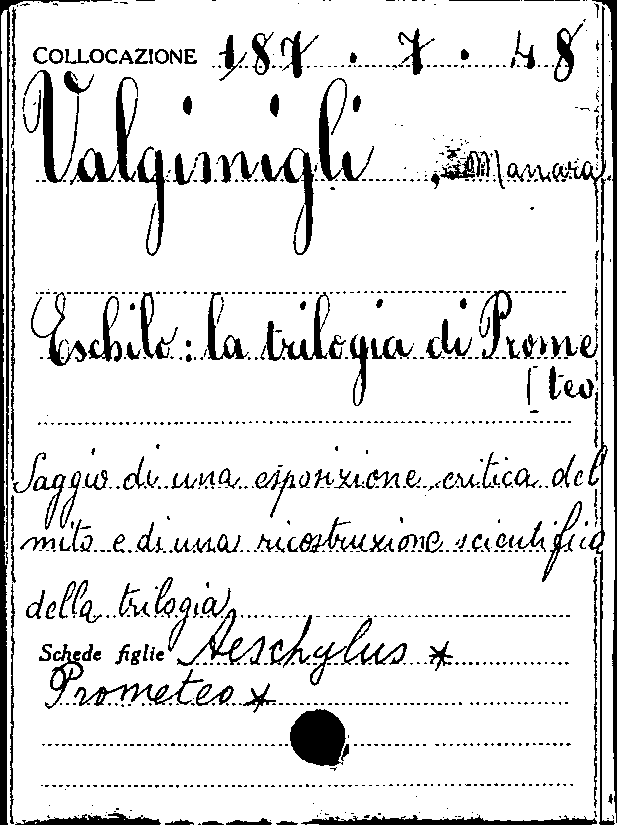 COLLOCAZIONE 187 . 7 . 48
Valgimigli, Manara
Eschilo: la trilogia di Prome
[teo
Saggio di una esposizione critica del
mito e di una ricostruzione scientifica
della trilogia
Schede figlie Aeschylus *
Prometeo *